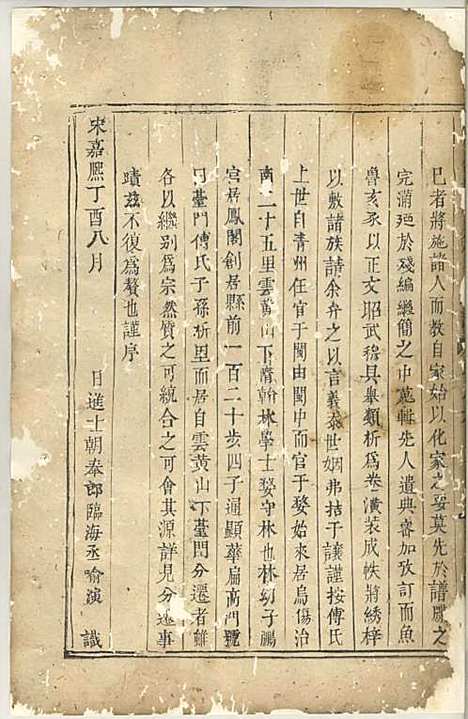 已者將施諸人而教自家始以化家之妥莫先於譜牒之
完蒲𣑽於殘編繼簡之中蒐輯先人遺典審加攷訂而魚
魯亥豕以正文昭武穆具舉類析為卷潢裝成帙將綉梓
以敷諸族請余弁之以言義忝世姻弗拮于讓謹按傅氏
上世自青州任官于閩由閩中而官于婺始來居烏傷治
南二十五里雲黃山下膺翰林學士婺守林也林幼子鵬
宮居鳳閣創居縣前一百二十步四子通顯華扁高門號
曰薹門傅氏子孫析里而居自雲黃山下薹門分遷者雖
各以繼別為宗然贊之可統合之可會其源詳見分遷事
蹟茲不復為贅也謹序
宋嘉熙丁酉八月
日進士朝奉郎臨海丞喻演 識